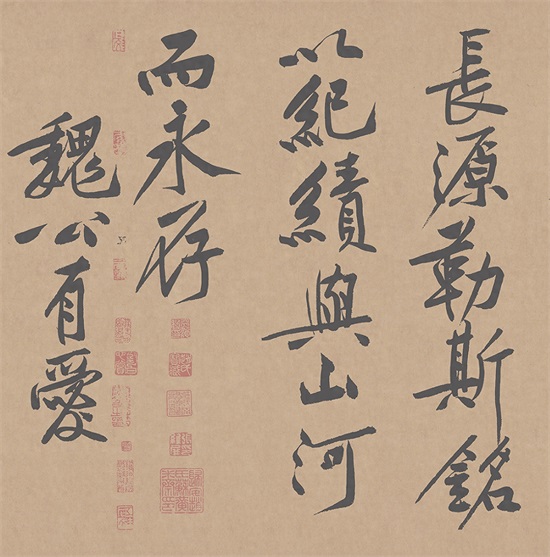 長源勒斯銘
以紀績與山河
而永存
魏公有愛